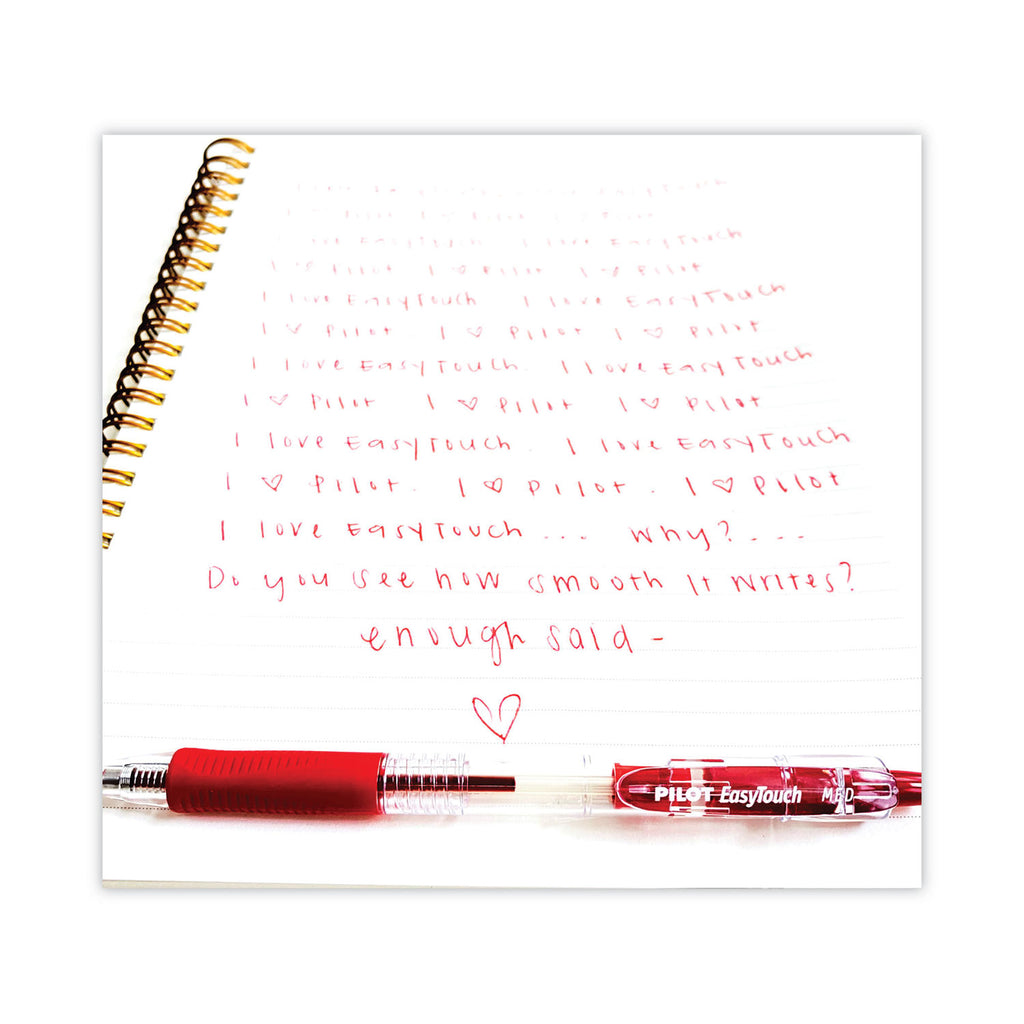 EasyTouch
I ♡ Pilot I ♡ Pilot I ♡ Pilot
I love EasyTouch I love EasyTouch
I ♡ Pilot I ♡ Pilot I ♡ Pilot
I love EasyTouch I love EasyTouch
I ♡ Pilot I ♡ Pilot I ♡ Pilot
I love EasyTouch. I love EasyTouch
I ♡ Pilot I ♡ Pilot I ♡ Pilot
I love EasyTouch. I love EasyTouch
I ♡ Pilot. I ♡ Pilot. I ♡ Pilot
I love EasyTouch... Why?....
Do you see how smooth it writes?
enough said -
♡
PILOT EasyTouch MED